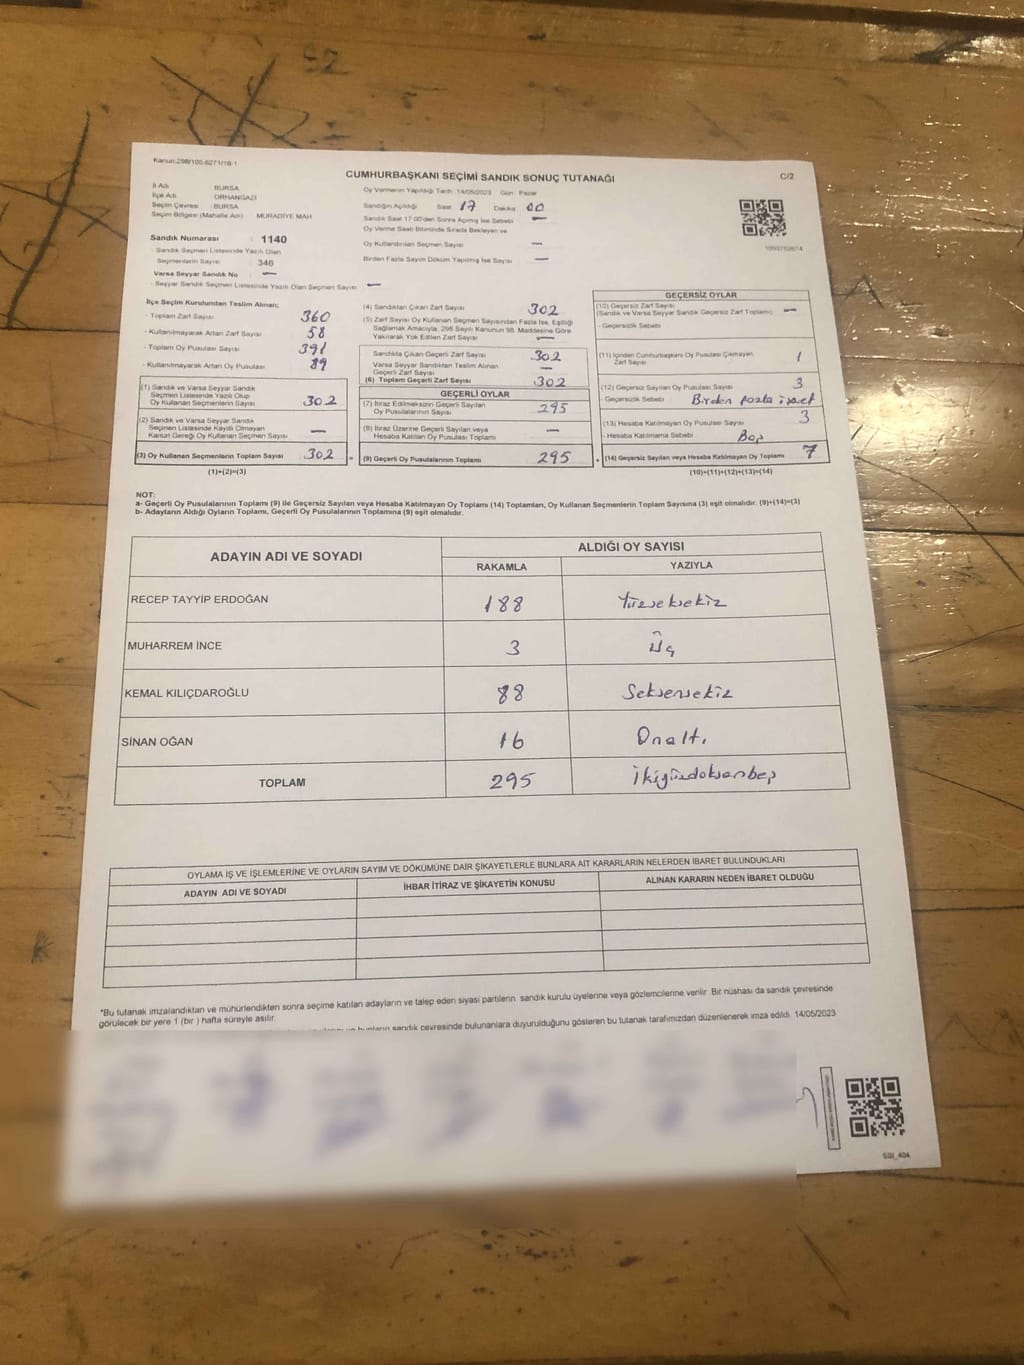 Kanun:298/105,6271/18-1
CUMHURBAŞKANI SEÇİMİ SANDIK SONUÇ TUTANAĞI
C/2
İl Adı : BURSA
İlçe Adı : ORHANGAZİ
Seçim Çevresi : BURSA
Seçim Bölgesi (Mahalle Adı) : MURADİYE MAH
Sandık Numarası : 1140
- Sandık Seçmen Listesinde Yazılı Olan
Seçmenlerin Sayısı : 346
Varsa Seyyar Sandık No : —
- Seyyar Sandık Seçmen Listesinde Yazılı Olan Seçmen Sayısı : —
Oy Vermenin Yapıldığı Tarih: 14/05/2023 Gün: Pazar
Sandığın Açıldığı Saat 17 Dakika 00
Sandık Saat 17.00'den Sonra Açılmış İse Sebebi : —
Oy Verme Saati Bitiminde Sırada Bekleyen ve
Oy Kullandırılan Seçmen Sayısı : —
Birden Fazla Sayım Döküm Yapılmış İse Sayısı : —
İlçe Seçim Kurulundan Teslim Alınan;
- Toplam Zarf Sayısı : 360
- Kullanılmayarak Artan Zarf Sayısı : 58
- Toplam Oy Pusulası Sayısı : 391
- Kullanılmayarak Artan Oy Pusulası : 89
(1) Sandık ve Varsa Seyyar Sandık
Seçmen Listesinde Yazılı Olup
Oy Kullanan Seçmenlerin Sayısı : 302
(2) Sandık ve Varsa Seyyar Sandık
Seçmen Listesinde Kayıtlı Olmayan
Kanun Gereği Oy Kullanan Seçmen Sayısı : —
(3) Oy Kullanan Seçmenlerin Toplam Sayısı : 302
(1)+(2)=(3)
(4) Sandıktan Çıkan Zarf Sayısı : 302
(5) Zarf Sayısı Oy Kullanan Seçmen Sayısından Fazla İse, Eşitliği
Sağlamak Amacıyla, 298 Sayılı Kanunun 98. Maddesine Göre
Yakılarak Yok Edilen Zarf Sayısı : —
Sandıkta Çıkan Geçerli Zarf Sayısı : 302
Varsa Seyyar Sandıktan Teslim Alınan
Geçerli Zarf Sayısı : —
(6) Toplam Geçerli Zarf Sayısı : 302
GEÇERLİ OYLAR
(7) İtiraz Edilmeksizin Geçerli Sayılan
Oy Pusulalarının Sayısı : 295
(8) İtiraz Üzerine Geçerli Sayılan veya
Hesaba Katılan Oy Pusulası Toplamı : —
(9) Geçerli Oy Pusulalarının Toplamı : 295
GEÇERSİZ OYLAR
(10) Geçersiz Zarf Sayısı
(Sandık ve Varsa Seyyar Sandık Geçersiz Zarf Toplamı) : —
- Geçersizlik Sebebi :
(11) İçinden Cumhurbaşkanı Oy Pusulası Çıkmayan
Zarf Sayısı : 1
(12) Geçersiz Sayılan Oy Pusulası Sayısı : 3
- Geçersizlik Sebebi : Birden fazla işaret
(13) Hesaba Katılmayan Oy Pusulası Sayısı : 3
- Hesaba Katılmama Sebebi : Boş
(14) Geçersiz Sayılan veya Hesaba Katılmayan Oy Toplamı : 7
(10)+(11)+(12)+(13)=(14)
NOT:
a- Geçerli Oy Pusulalarının Toplamı (9) ile Geçersiz Sayılan veya Hesaba Katılmayan Oy Toplamı (14) Toplamları, Oy Kullanan Seçmenlerin Toplam Sayısına (3) eşit olmalıdır. (9)+(14)=(3)
b- Adayların Aldığı Oyların Toplamı, Geçerli Oy Pusulalarının Toplamına (9) eşit olmalıdır.
ADAYIN ADI VE SOYADI
ALDIĞI OY SAYISI
RAKAMLA YAZIYLA
RECEP TAYYİP ERDOĞAN 188 Yüzseksekiz
MUHARREM İNCE 3 Üç
KEMAL KILIÇDAROĞLU 88 Seksensekiz
SİNAN OĞAN 16 Onaltı
TOPLAM 295 İkiyüzdoksanbeş
OYLAMA İŞ VE İŞLEMLERİNE VE OYLARIN SAYIM VE DÖKÜMÜNE DAİR ŞİKAYETLERLE BUNLARA AİT KARARLARIN NELERDEN İBARET BULUNDUKLARI
ADAYIN ADI VE SOYADI İHBAR İTİRAZ VE ŞİKAYETİN KONUSU ALINAN KARARIN NEDEN İBARET OLDUĞU
*Bu tutanak imzalandıktan ve mühürlendikten sonra seçime katılan adayların ve talep eden siyasi partilerin sandık kurulu üyelerine veya gözlemcilerine verilir. Bir nüshası da sandık çevresinde
görülecek bir yere 1 (bir ) hafta süreyle asılır.
sandık çevresinde bulunanlara duyurulduğunu gösteren bu tutanak tarafımızdan düzenlenerek imza edildi. 14/05/2023